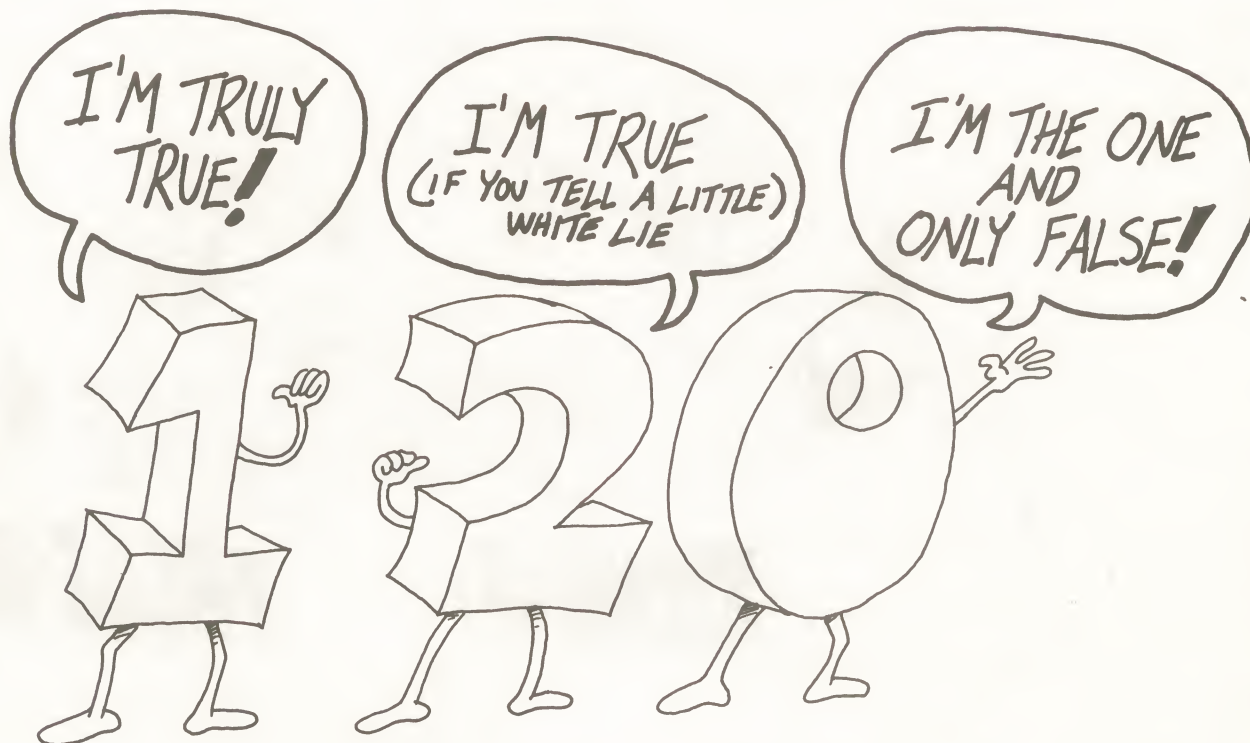 I'M TRULY
TRUE!
I'M TRUE
(IF YOU TELL A LITTLE)
WHITE LIE
I'M THE ONE
AND
ONLY FALSE!
1 2 0